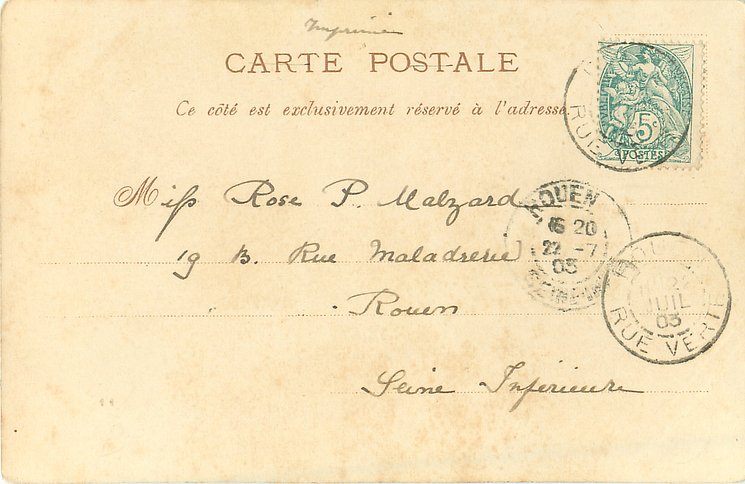 Imprimé
CARTE POSTALE
Ce côté est exclusivement réservé à l'adresse
5c
POSTES
RUE VE
Miss Rose P. Malzard
19 B. Rue Maladrerie
Rouen
Seine Inférieure
ROUEN
20
22 -7
03
22
JUIL
03
RUE VERTE